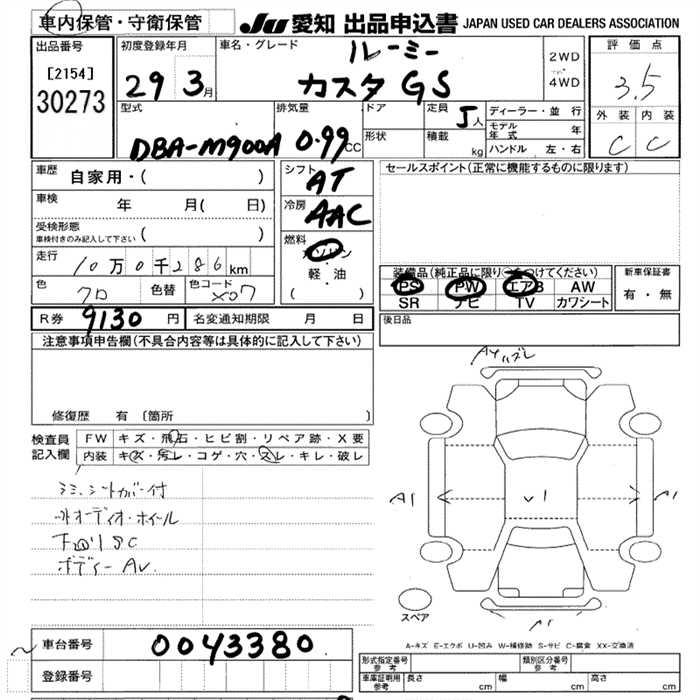 車内保管・守衛保管
JU 愛知 出品申込書 JAPAN USED CAR DEALERS ASSOCIATION
出品番号
[2154]
30273
初度登録年月
29 3月
車名・グレード
ルーミー
カスタ GS
2WD
4WD
評価点
3.5
外装 内装
C C
型式
DBA-M900A
排気量
0.99 CC
ドア
形状
定員 5人
積載 kg
ディーラー・並行
モデル年式 年
ハンドル 左・右
車歴 自家用・( )
車検 年 月( 日)
受検形態
車検付きのみ記入して下さい ( )
走行 10万0千286km
色 クロ 色替 色コード X07
シフト AT
冷房 AAC
燃料
ガソリン
軽・油
( )
セールスポイント(正常に機能するものに限ります)
装備品(純正品に限り○をつけてください)
PS PW エアB AW
SR ナビ TV カワシート
新車保証書
有・無
R券 9130円 名変通知期限 月 日
後日品
注意事項申告欄(不具合内容等は具体的に記入して下さい)
修復歴 有〔箇所
検査員記入欄
FW キズ・飛石・ヒビ割・リペア跡・X要
内装 キズ・汚レ・コゲ・穴・スレ・キレ・破レ
シミ、シートカバー付
外オーディオ・ホイール
下回りSC
ボディーAV.
AYハズレ
A1
v1
A1
A1
スペア
A-キズ E-エクボ U-凹み W-補修跡 S-サビ C-腐食 XX-交換済
車台番号 0043380
登録番号
形式指定番号 参考
類別区分番号 参考
車庫証明用 参考 長さ cm 幅 cm 高さ cm